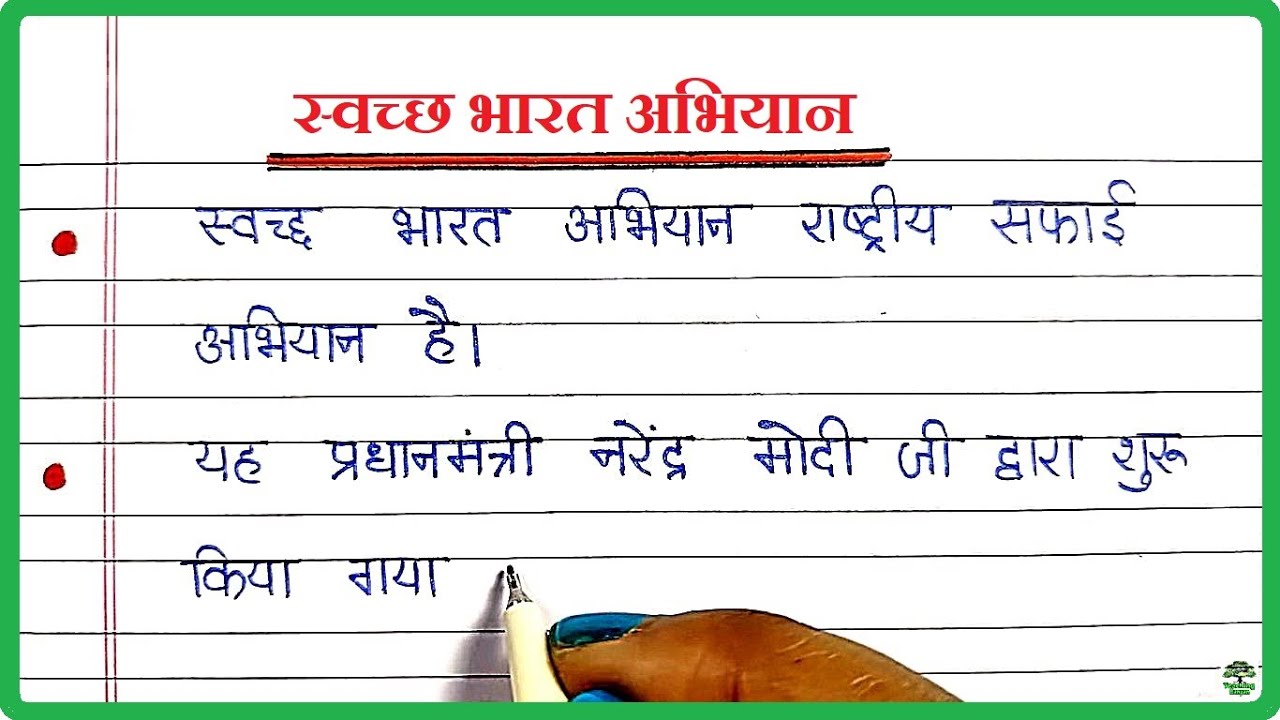 स्वच्छ भारत अभियान
स्वच्छ भारत अभियान राष्ट्रीय सफाई
अभियान है।
यह प्रधानमंत्री नरेंद्र मोदी जी द्वारा शुरू
किया गया